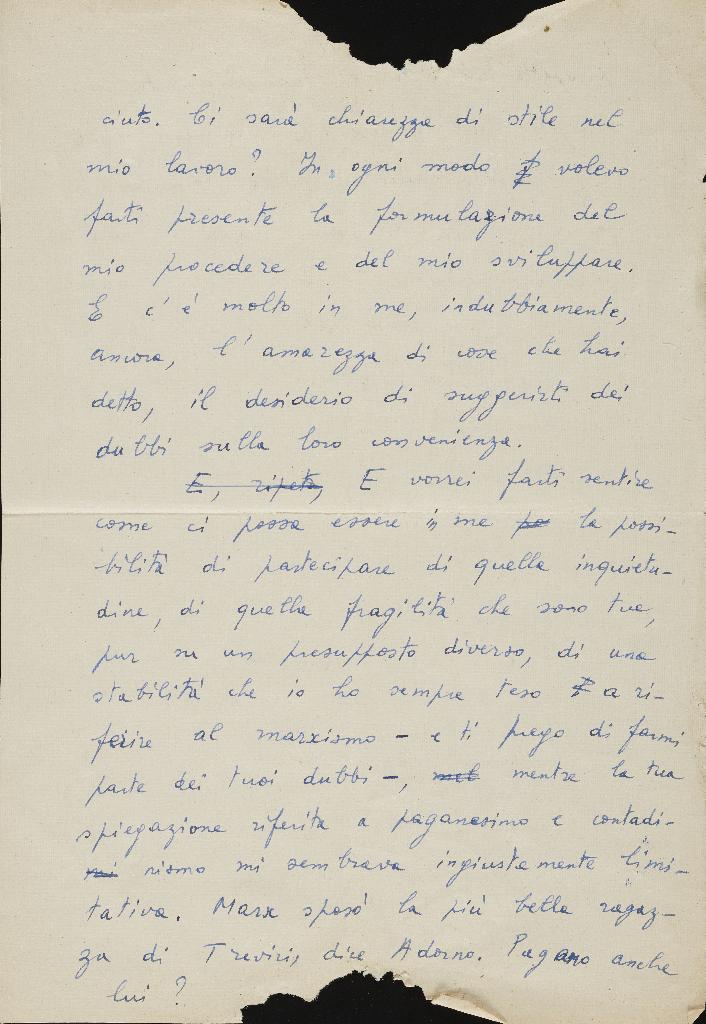 ciuto. Ci sarà chiarezza di stile nel
mio lavoro? In ogni modo volevo
farti presente la formulazione del
mio procedere e del mio sviluppare.
E c'è molto in me, indubbiamente,
ancora, l'amarezza di cose che hai
detto, il desiderio di suggerirti dei
dubbi sulla loro convenienza.
E, ripeto, E vorrei farti sentire
come ci possa essere in me po la possi-
bilità di partecipare di quella inquietu-
dine, di quella fragilità che sono tue,
pur su un presupposto diverso, di una
stabilità che io ho sempre teso a ri-
ferire al marxismo - e ti prego di farmi
parte dei tuoi dubbi -, nel mentre la tua
spiegazione riferita a paganesimo e contadi-
ni nismo mi sembrava ingiustamente limi-
tativa. Marx sposò la più bella ragaz-
za di Treviri, dice Adorno. Pagano anche
lui?